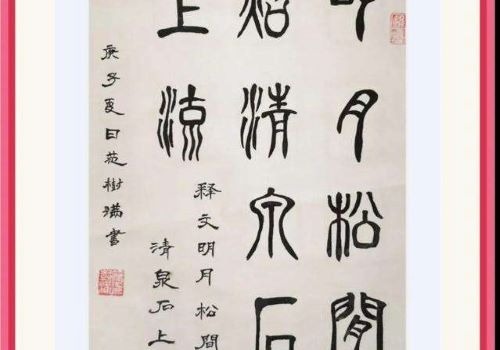 明月松間
照清泉石
上流
釋文明月松間
清泉石上
庚子夏日 樹 書